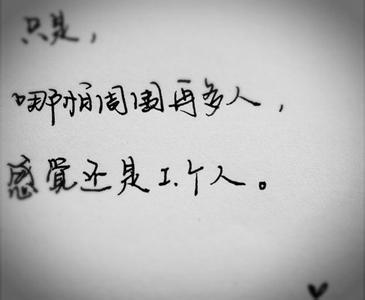 只是，
哪怕周围再多人，
感觉还是工.个人。